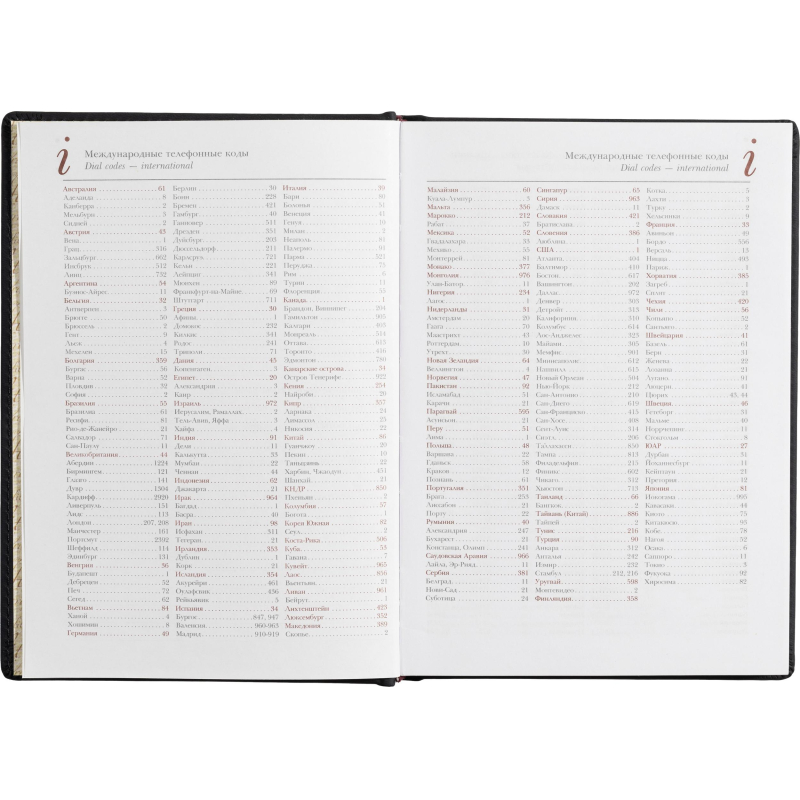 i
Международные телефонные коды
Dial codes — international
Австралия 61
Аделаида 8
Канберра 2
Мельбурн 3
Сидней 2
Австрия 43
Вена 1
Грац 316
Зальцбург 662
Инсбрук 512
Линц 732
Аргентина 54
Буэнос-Айрес 11
Бельгия 32
Антверпен 3
Брюгге 50
Брюссель 2
Гент 9
Льеж 4
Мехелен 15
Болгария 359
Бургас 56
Варна 52
Пловдив 32
София 2
Бразилия 55
Бразилиа 61
Ресифи 81
Рио-де-Жанейро 21
Салвадор 71
Сан-Паулу 11
Великобритания 44
Абердин 1224
Бирмингем 121
Глазго 141
Дувр 1304
Кардифф 2920
Ливерпуль 151
Лидс 113
Лондон 207, 208
Манчестер 161
Портсмут 2392
Шеффилд 114
Эдинбург 131
Венгрия 36
Будапешт 1
Дебрецен 52
Печ 72
Сегед 62
Вьетнам 84
Ханой 4
Хошимин 8
Германия 49
Берлин 30
Бонн 228
Бремен 421
Гамбург 40
Ганновер 511
Дрезден 351
Дуйсбург 203
Дюссельдорф 211
Карлсруэ 721
Кельн 221
Лейпциг 341
Мюнхен 89
Франкфурт-на-Майне 69
Штутгарт 711
Греция 30
Афины 1
Домокос 232
Килкис 341
Родос 241
Триполи 71
Дания 45
Копенгаген 3
Египет 20
Александрия 3
Каир 2
Израиль 972
Иерусалим, Рамаллах 2
Тель-Авив, Яффа 3
Хайфа 4
Индия 91
Дели 11
Калькутта 33
Мумбаи 22
Ченнаи 44
Индонезия 62
Джакарта 21
Ирак 964
Багдад 1
Басра 40
Иран 98
Исфахан 311
Тегеран 21
Ирландия 353
Дублин 1
Корк 21
Исландия 354
Акурейри 461
Рейкьявик 5
Испания 34
Бургос 847, 947
Валенсия 960-963
Мадрид 910-919
Италия 39
Бари 80
Болонья 51
Венеция 41
Генуя 10
Милан 2
Неаполь 81
Палермо 91
Парма 521
Перуджа 75
Рим 6
Турин 11
Флоренция 55
Канада 1
Брандон, Виннипег 204
Гамильтон 905
Калгари 403
Монреаль 514
Оттава 613
Торонто 416
Эдмонтон 780
Канарские острова 34
Остров Тенерифе 922
Кения 254
Найроби 20
Кипр 357
Ларнака 24
Лимассол 25
Никосия 22
Китай 86
Гуанчжоу 20
Пекин 10
Тяньцзинь 22
Шанхай 21
КНДР 850
Пхеньян 2
Колумбия 57
Богота 1
Корея Южная 82
Сеул 2
Коста-Рика 506
Куба 53
Гавана 7
Кувейт 965
Лаос 856
Вьентьян 21
Ливан 961
Бейрут 1
Лихтенштейн 423
Люксембург 352
Македония 389
Скопье 2
i
Международные телефонные коды
Dial codes — international
Малайзия 60
Куала-Лумпур 3
Мальта 356
Марокко 212
Рабат 37
Мексика 52
Гвадалахара 33
Мехико 55
Монтеррей 81
Монако 377
Монголия 976
Улан-Батор 11
Нигерия 234
Лагос 1
Нидерланды 31
Амстердам 20
Гаага 70
Маастрихт 43
Роттердам 10
Утрехт 30
Новая Зеландия 64
Веллингтон 4
Норвегия 47
Пакистан 92
Исламабад 51
Карачи 21
Парагвай 595
Асунсьон 21
Перу 51
Лима 1
Польша 48
Варшава 22
Гданьск 58
Краков 12
Познань 61
Португалия 351
Брага 253
Лиссабон 21
Порту 22
Румыния 40
Бухарест 21
Саудовская Аравия 966
Сербия 381
Белград 11
Нови-Сад 21
Суботица 24
Сингапур 65
Сирия 963
Дамаск 11
Словакия 421
Братислава 2
Словения 386
Любляна 1
США 1
Атланта 404
Балтимор 410
Бостон 617
Вашингтон 202
Даллас 972
Денвер 303
Детройт 313
Колумбус 614
Лос-Анджелес 323
Майами 305
Мемфис 901
Новый Орлеан 504
Нью-Йорк 212
Сан-Антонио 210
Сан-Диего 619
Сан-Франциско 415
Сан-Хосе 408
Сиэтл 206
Таллахасси 850
Тампа 813
Филадельфия 215
Финикс 602
Чикаго 312
Хьюстон 713
Таиланд 66
Бангкок 2
Тайвань (Китай) 886
Тайпей 2
Тунис 216
Турция 90
Анкара 312
Анталья 242
Измир 232
Стамбул 212, 216
Уругвай 598
Монтевидео 2
Финляндия 358
Котка 5
Лахти 3
Турку 2
Хельсинки 9
Франция 33
Авиньон 49
Бордо 556
Версаль 13
Ницца 493
Париж 1
Хорватия 385
Загреб 1
Сплит 21
Чехия 420
Чили 56
Сантьяго 2
Швейцария 41
Базель 61
Берн 31
Женева 22
Лозанна 21
Лугано 91
Люцерн 41
Цюрих 43, 44
Швеция 46
Гетеборг 31
Мальме 40
Норрчепинг 11
Стокгольм 8
ЮАР 27
Дурбан 31
Йоханнесбург 11
Кейптаун 21
Претория 12
Япония 81
Иокогама 45
Кавасаки 44
Киото 75
Кобе 78
Нагоя 52
Осака 6
Саппоро 11
Токио 3
Фукуока 92
Хиросима 82